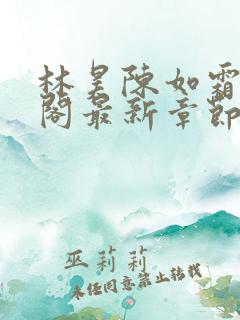 林昊陳如霜
閣最新章節
巫莉莉
未经同意禁止转载